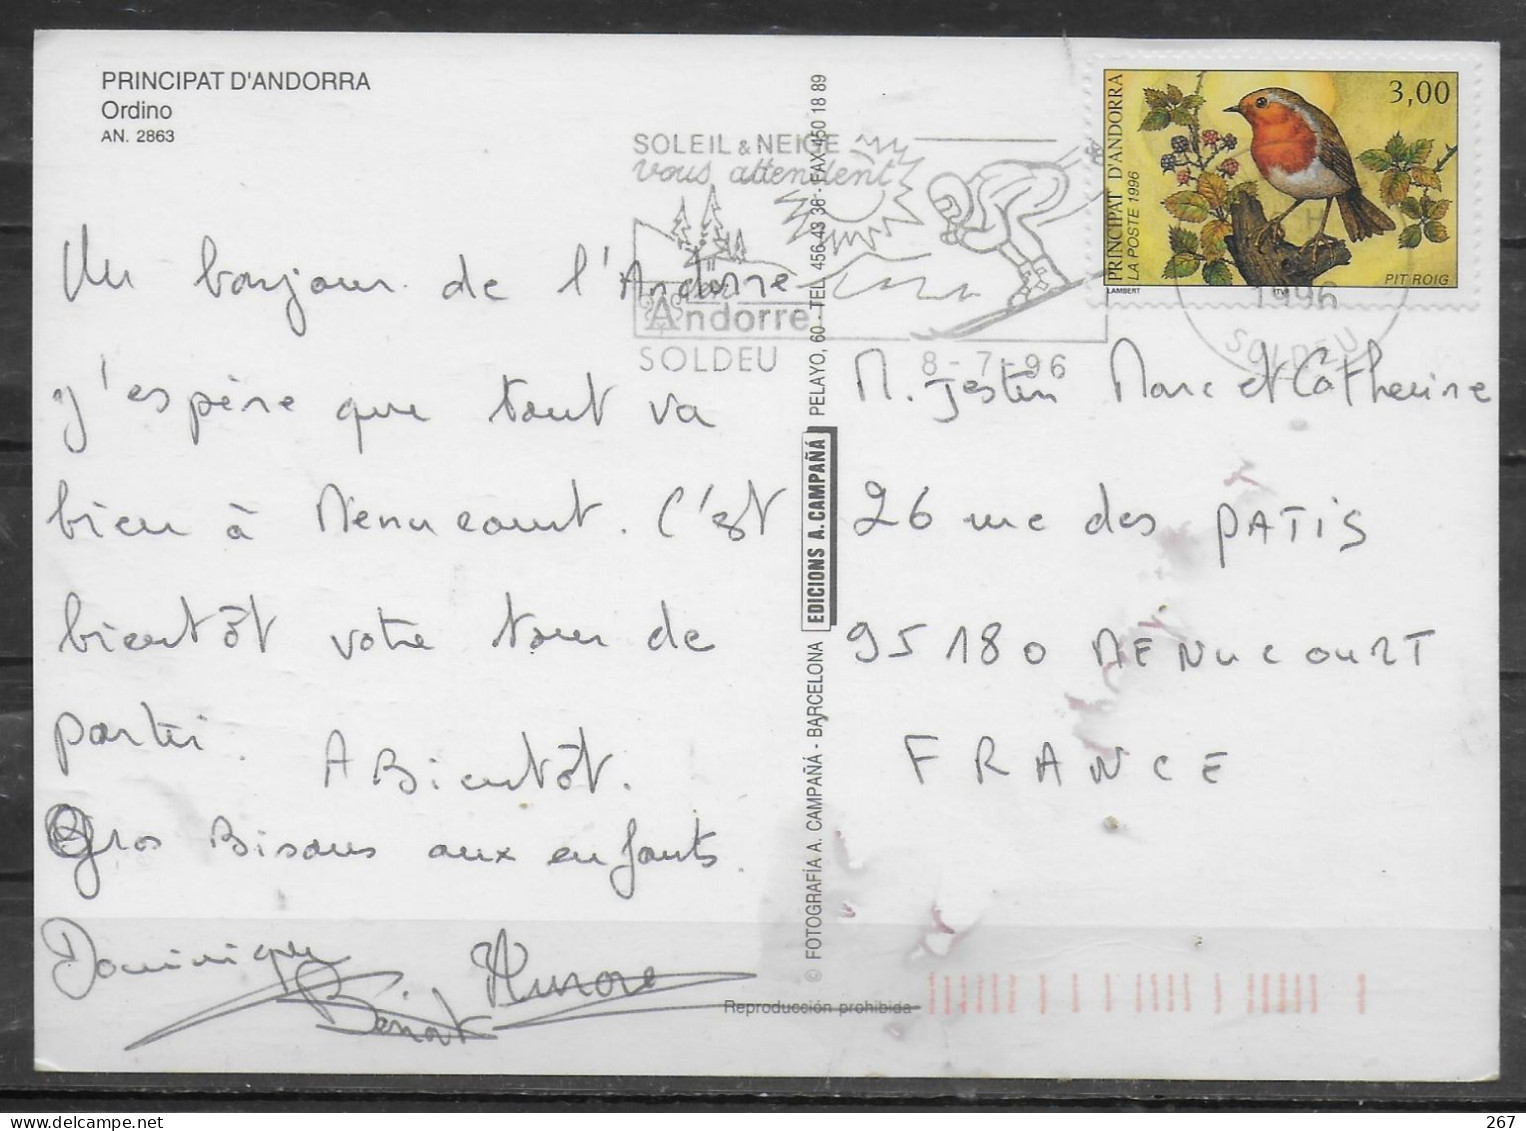 PRINCIPAT D'ANDORRA
Ordino
AN. 2863
SOLEIL & NEIGE
vous attendent
Andorre
SOLDEU
8-7-96
1996
SOLDEU
PRINCIPAT D'ANDORRA
LA POSTE 1996
3,00
PIT ROIG
LAMBERT
Un bonjour de l'Andorre
J'espère que tout va
bien à Menucourt. C'est
bientôt votre tour de
partir. A Bientôt.
Gros Bisous aux enfants.
Dominique Aurore
Benoit
M. Jestin Marc et Catherine
26 rue des PATIS
95180 MENUCOURT
FRANCE
© FOTOGRAFÍA A. CAMPAÑÁ - BARCELONA EDICIONS A. CAMPAÑÁ PELAYO, 60 - TEL. 456 43 36 - FAX 450 18 89
Reproducción prohibida
© delcampe.net
jcb78
267